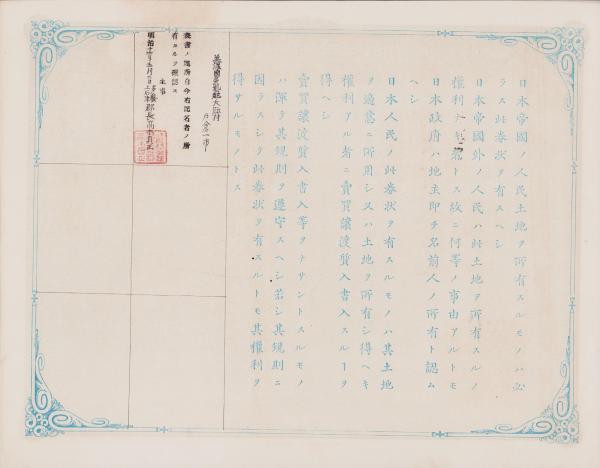 日本帝國ノ人民土地ヲ所有スルモノハ必
ラス此券狀ヲ有スヘシ
日本帝國外ノ人民ハ此土地ヲ所有スルノ
權利ナキ者トス故ニ何等ノ事由アルトモ
日本政府ハ地主即チ名前人ノ所有ト認ム
ヘシ
日本人民ノ此券狀ヲ有スルモノハ其土地
ヲ適意ニ所用シ又ハ土地ヲ所有シ得ヘキ
權利アル者ニ賣買讓渡質入書入スルヿヲ
得ヘシ
賣買讓渡質入書入等ヲナサントスルモノ
ハ渾テ其規則ヲ遵守スヘシ若シ其規則ニ
因ラスシテ此券狀ヲ有スルトモ其權利ヲ
得サルモノトス
美濃國
村
表書ノ地所自今右記名者ノ所
有タルヲ確認ス
明治
郡長